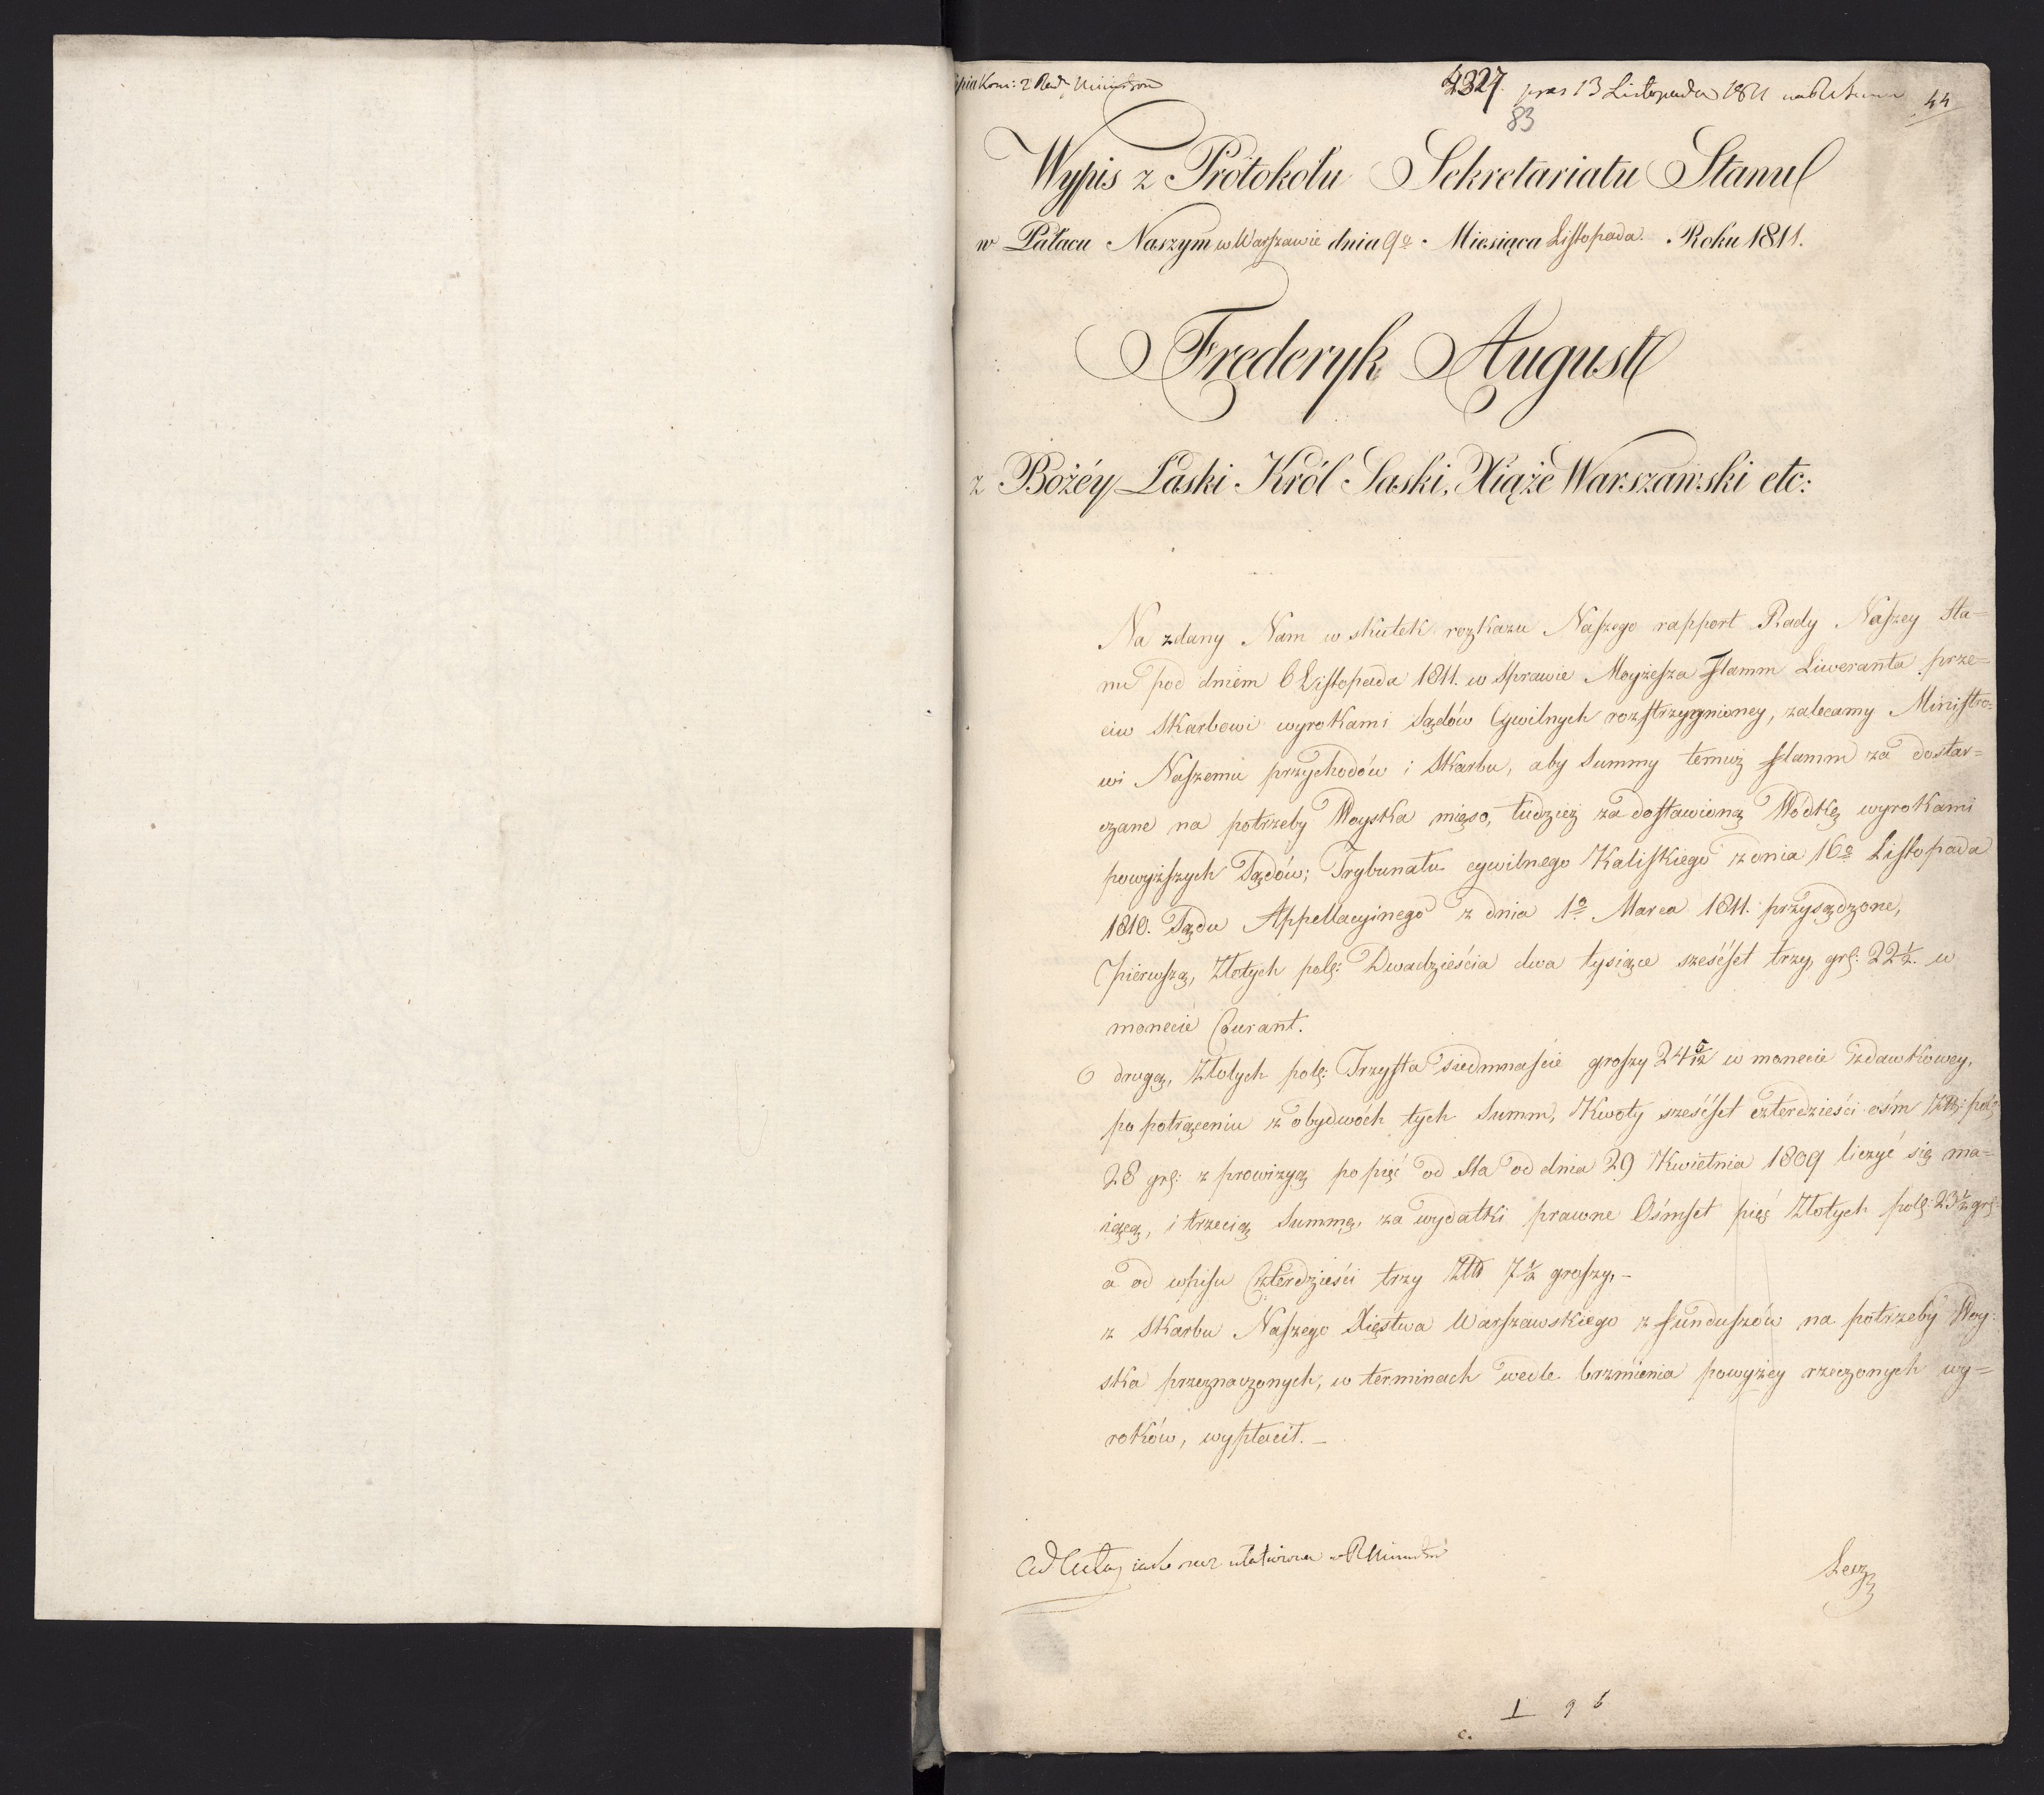 4327. pres 13 Listopada 1811
44
83
Wypis z Protokołu Sekretariatu Stanu
w Pałacu Naszym w Warszawie dnia 9º Miesiąca Listopada. Roku 1811.
Frederyk August
z Bożéy Łaski Król Saski, Xiąże Warszawski etc:
Na zdany Nam w skutek rozkazu Naszego rapport Rady Naszey Sta=
nu pod dniem 6 Listopada 1811. w sprawie Moyżesza Flamm Liweranta prze=
ciw Skarbowi wyrokami Sądów Cywilnych rozstrzygnioney, zalecamy Ministro=
wi Naszemu przychodów i Skarbu, aby Summy temuż Flamm za dostar=
czane na potrzeby Woyska mięso, tudzież za dostawioną Wódkę wyrokami
powyższych Sądów; Trybunału cywilnego Kaliskiego z dnia 16º Listopada
1810. Sądu Appellacyinego z dnia 1º Marca 1811. przysądzone,
pierwszą, Złotych pols: Dwadzieścia dwa tysiące sześćset trzy, grs: 22½. w
monecie Courant.
drugą, Złotych pols: Trzysta siedmnaście groszy 24 5/12 w monecie zdawkowey,
po potrąceniu z obydwóch tych Summ, Kwoty sześćset czterdzieści ośm Złł: pols
28 grs: z prowizyą po pięć od sta od dnia 29 Kwietnia 1809 liczyć się ma=
iącą, i trzecią Summę, za wydatki prawne Ośmset pięć Złotych pols: 23½ grs:
a od wpisu Czterdzieści trzy Złł 7½ groszy, –
z Skarbu Naszego Xięstwa Warszawskiego z funduszów na potrzeby Woy=
ska przeznaczonych, w terminach wedle brzmienia powyżey rzeczonych wy=
roków, wypłacił. –
Ad acta,
1 9 6